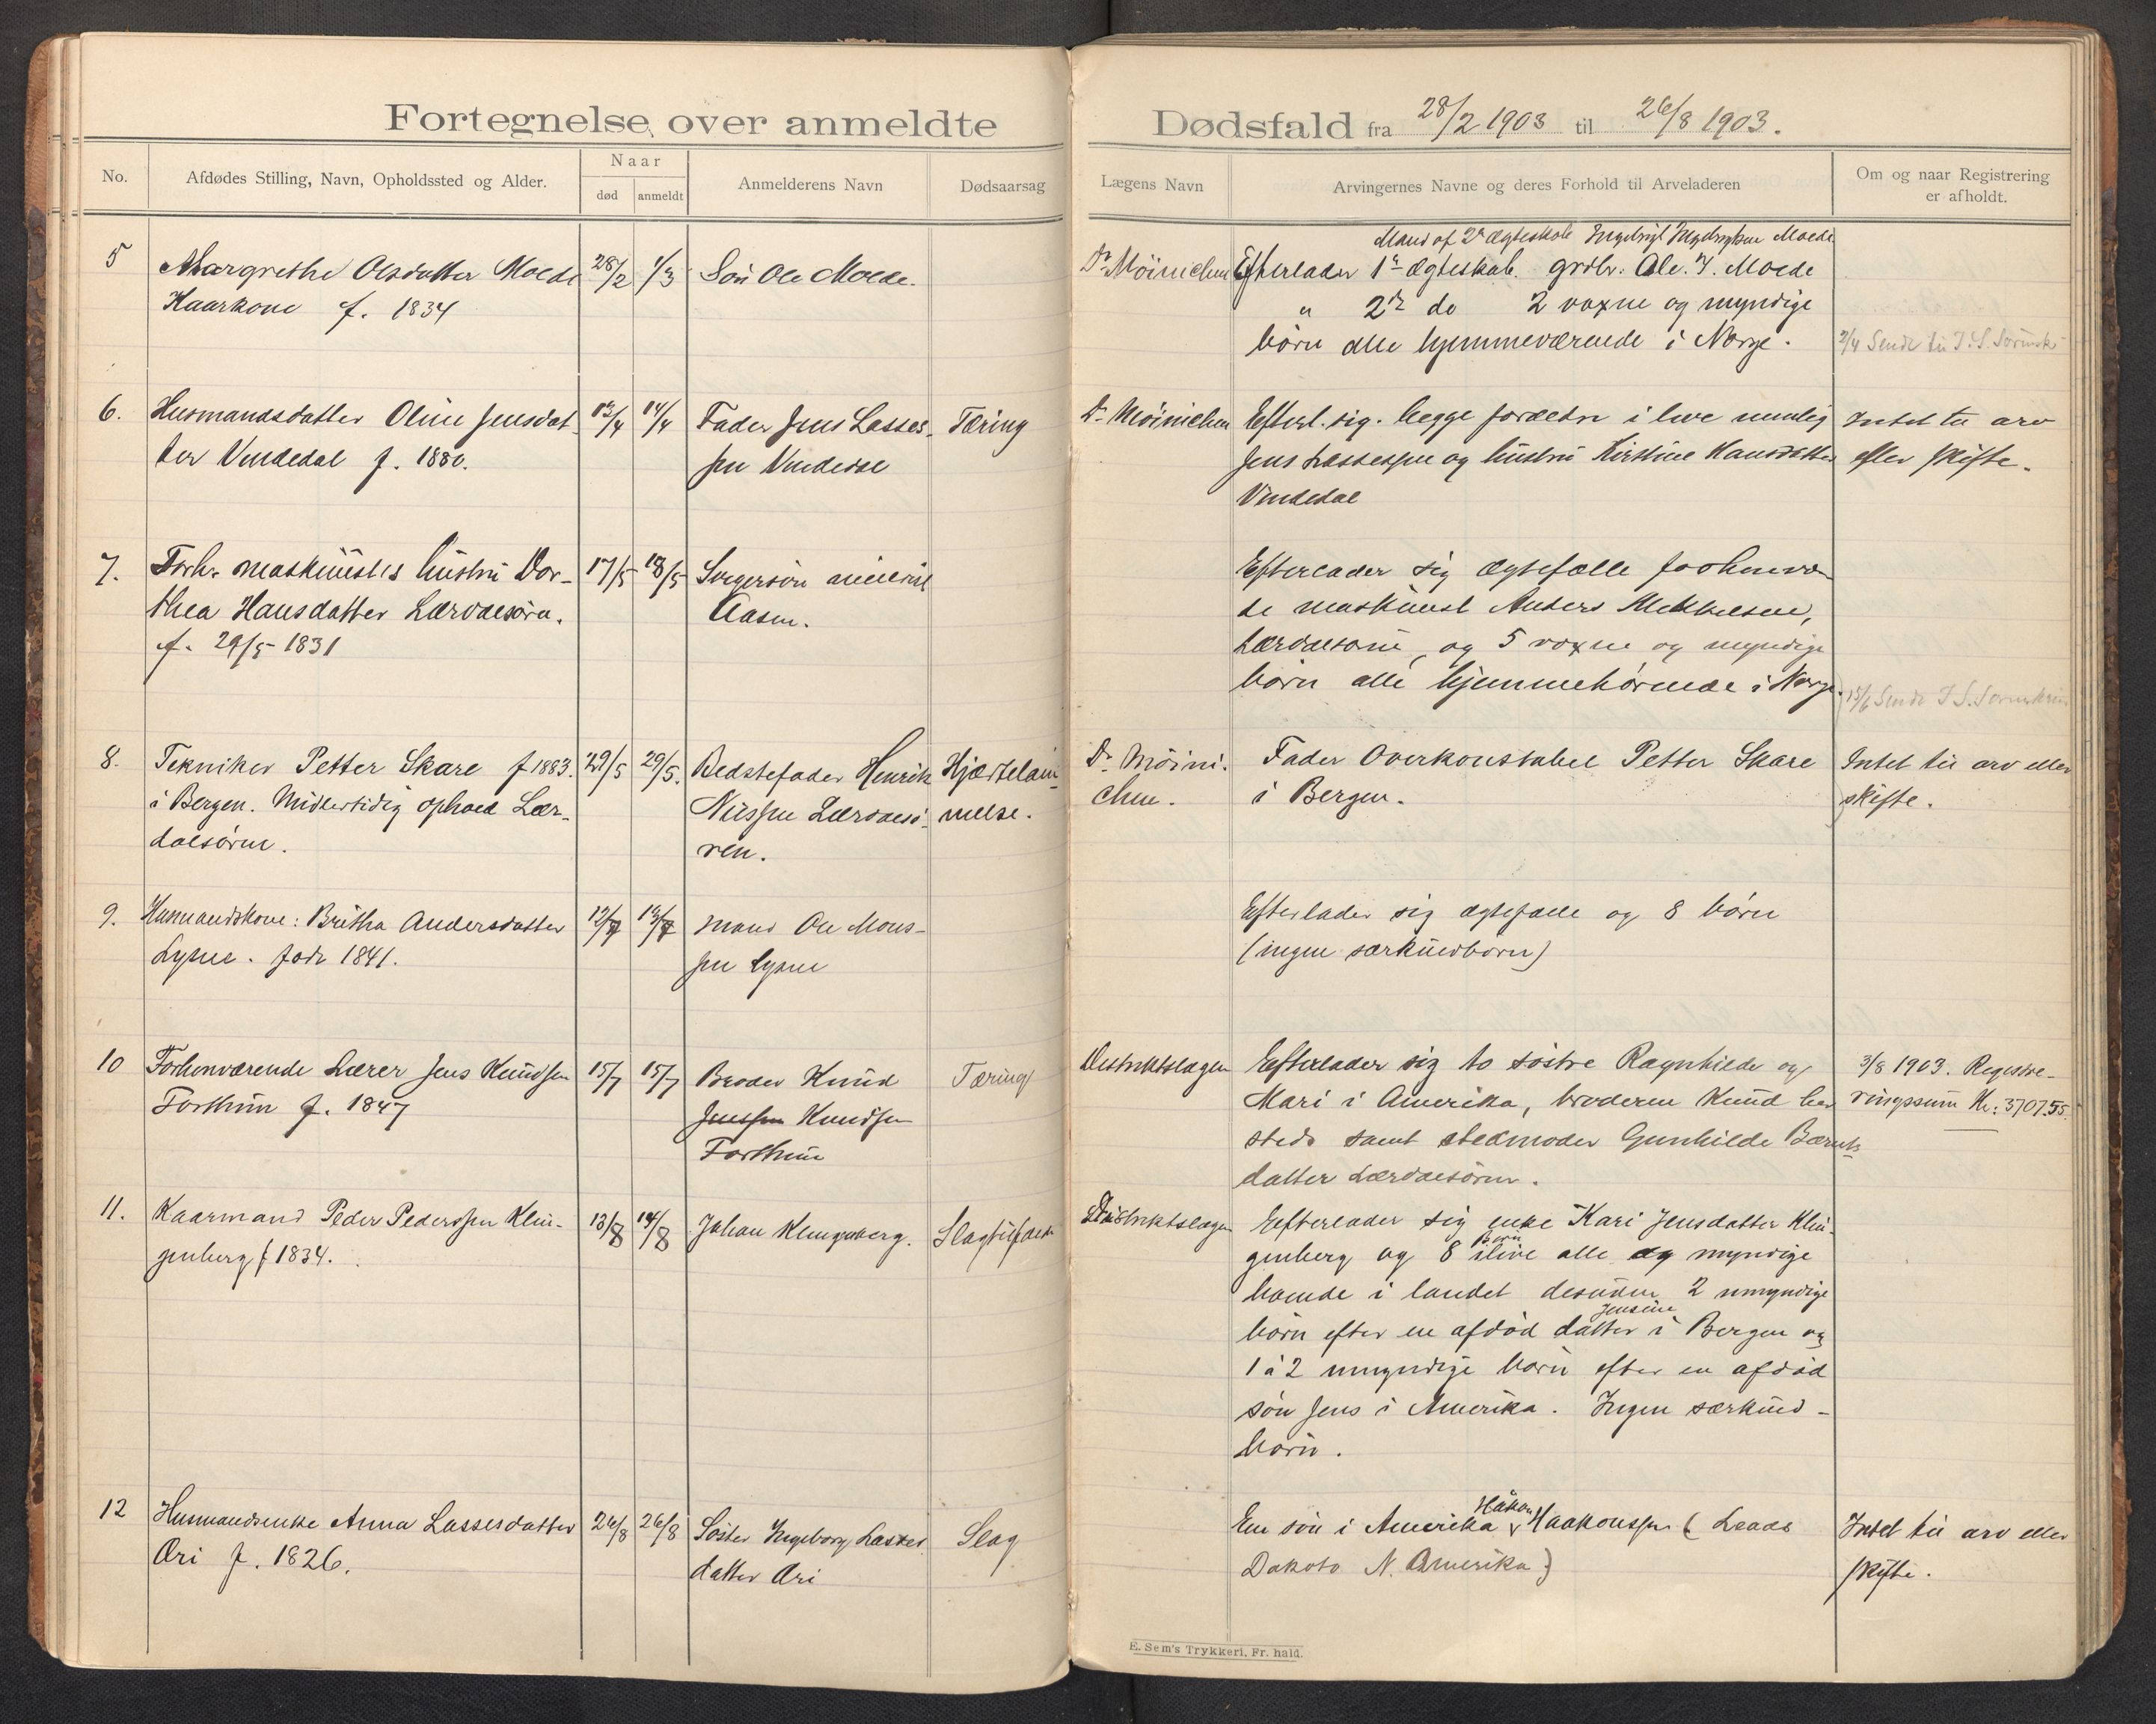 Fortegnelse over anmeldte
Dødsfald fra 28/2 1903 til 26/8 1903.
No.
Afdødes Stilling, Navn, Opholdssted og Alder.
Naar
død
anmeldt
Anmelderens Navn
Dødsaarsag
Lægens Navn
Arvingernes Navne og deres Forhold til Arveladeren
Om og naar Registrering
er afholdt.
5
Margrethe Olsdatter Molde
Kaarkone f. 1834
28/2
1/3
Søn Ole Molde.
Dr Möinichen
Mand af 2' ægteskab Ingebrigt Ingebrigtsen Molde
Efterlader 1' ægteskab. grdbr. Ole. I. Molde
" 2' do 2 voxne og myndige
børn alle hjemmeværende i Norge.
2/4 Sendt til S.S.
6.
Husmandsdatter Oline Jensdat-
ter Vindedal f. 1880.
13/4
14/4
Fader Jens Lasses-
sen Vindedal
Tæring
Dr Möinichen
Efterl. sig. begge forældre i live nemlig
Jens Lassessen og hustru Kirstine Hansdatter
Vindedal
Intet til arv
eller skifte.
7.
Forhv. maskinists hustru Dor-
thea Hansdatter Lærdalsøren.
f. 29/5 1831
17/5
18/5
Svigersøn
Aasen.
Efterlader sig ægtefælle forhenvæ-
de maskinist Anders Mikkelsen,
Lærdalsøren, og 5 voxne og myndige
børn alle hjemmehørende i Norge.
15/6 Sendt S.S.
8.
Tekniker Petter Skare f 1883.
i Bergen. Midlertidig ophold Lær-
dalsøren.
29/5
29/5.
Bedstefader Henrik
Nilssen Lærdalsø-
ren.
Hjærtelam-
melse.
Dr Möini-
chen.
Fader Overkonstabel Petter Skare
i Bergen.
Intet til arv eller
skifte.
9.
Husmandskone: Britha Andersdatter
Lysne. født 1841.
12/7
13/7
Mand Ole Mons-
sen Lysne
Efterlader sig ægtefælle og 8 børn
(ingen særkuldbørn)
10
Forhenværende Lærer Jens Knudsen
Forthun f. 1847
15/7
15/7
Broder Knud
Jenssen Knudsen
Forthun
Tæring
Distriktslægen
Efterlader sig to søstre Ragnhilde og
Mari i Amerika, broderen Knud her
steds samt stedmoder Gunhilde Bærnts
datter Lærdalsøren.
3/8 1903. Registre-
ringssum Kr: 3707.55.
11.
Kaarmand Peder Pederssen Klin-
genberg f 1834.
13/8
14/8
Johan Klingenberg.
Slagtilfælde
Distriktslægen
Efterlader sig enke Kari Jensdatter Klin-
genberg og 8 børn ilive alle og myndige
boende i landet desuden 2 umyndige
børn efter en afdød datter Jensine i Bergen og
1 à 2 umyndige børn efter en afdød
søn Jens i Amerika. Ingen særkuld-
børn.
12
Husmandsenke Anna Lassesdatter
Øri f. 1826.
26/8
26/8
Søster Ingeborg Lasses
datter Øri
Slag
En søn i Amerika Håkon Haakonssen (Leads
Dakota N. Amerika)
Intet til arv eller
skifte.
E. Sem's Trykkeri, Fr. hald.